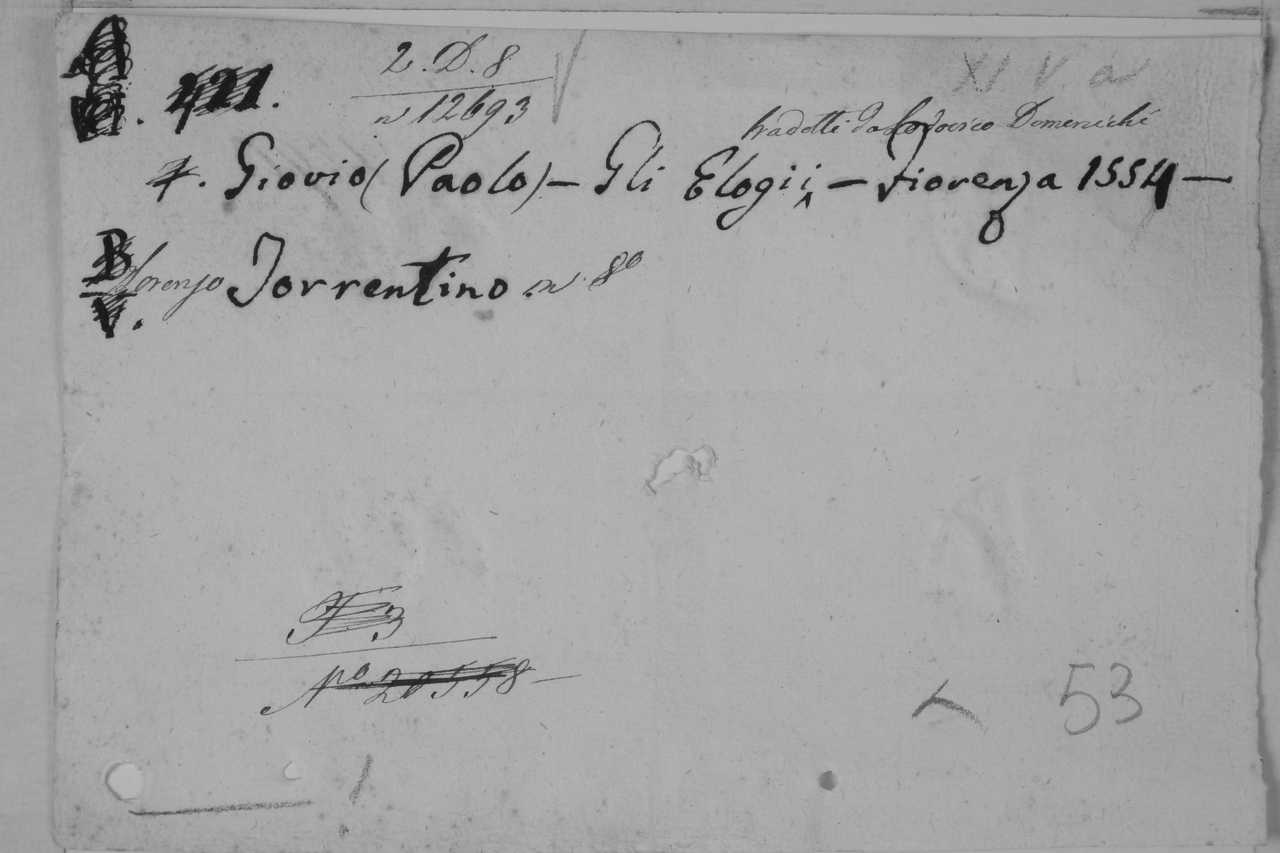 2. D. 8
n 12693
XI V a
tradotti da Lodovico Domenichi
7. Giovio (Paolo) – Gli Elogii – Fiorenza 1554 –
B
V.
Lorenzo Torrentino. in 8°
F 3
N° 20558 –
53